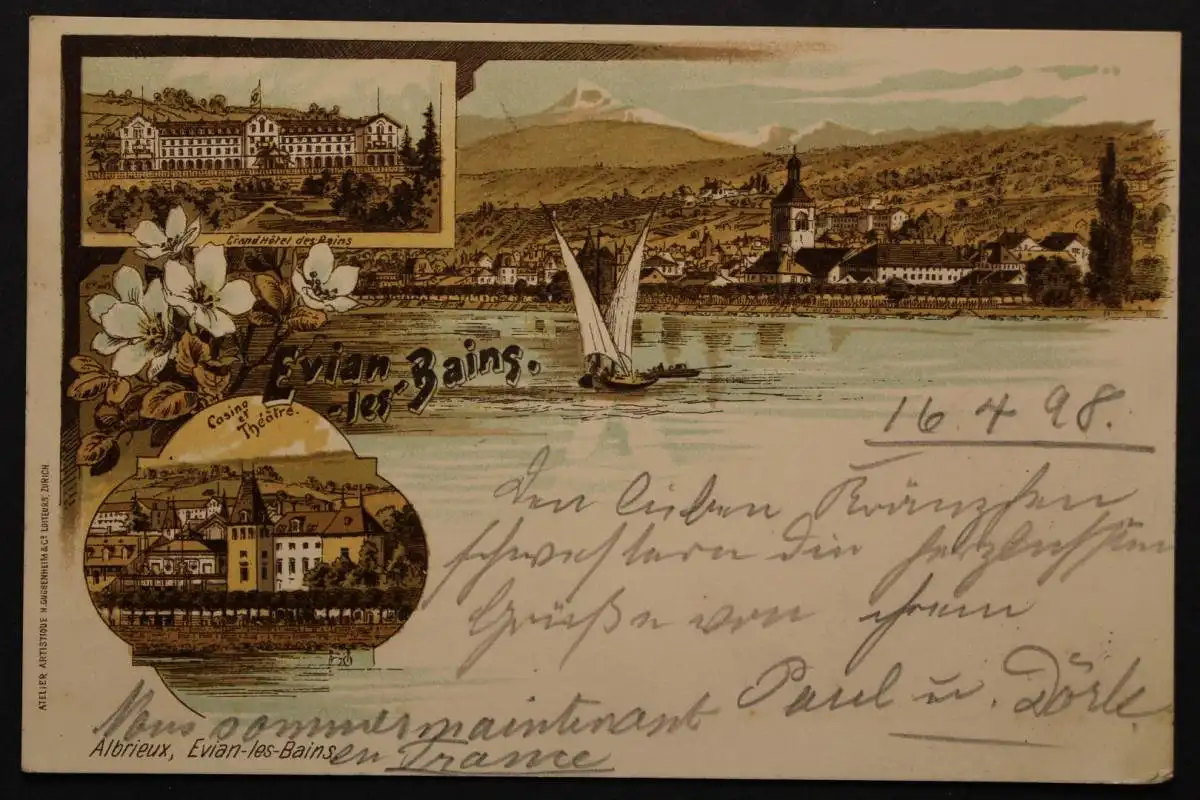 Grand Hôtel des Bains
Evian
-les-Bains.
Casino
et
Théâtre.
16. 4. 98.
Den lieben Kränzchen
schwestern die herzlichsten
Grüße von ihrem
Paul u. Dörle
Nous sommes maintenant
en France
Albrieux, Evian-les-Bains.
ATELIER ARTISTIQUE H. GUGGENHEIM & Cº EDITEURS, ZURICH.